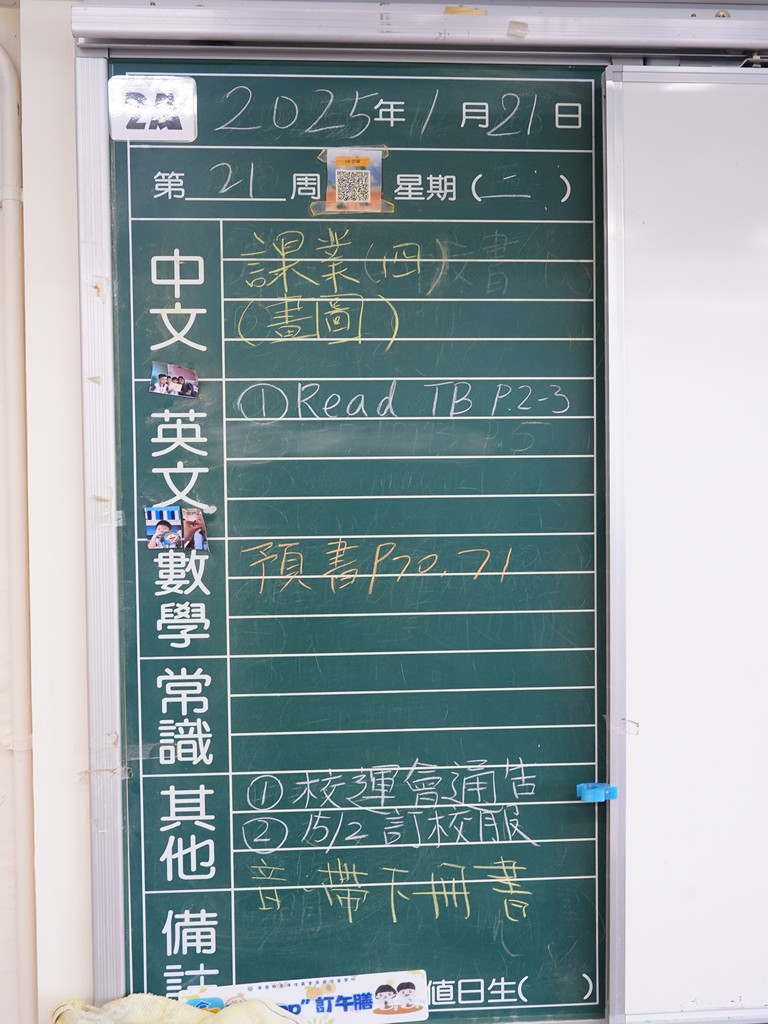 2A
2025年1月21日
第21周 星期(二)
中文
課業(四)
(畫圖)
英文
①Read TB P.2-3
數學
預書P70,71
常識
其他
①校運會通告
②15/2訂校服
音-帶下冊書
備註
訂午膳
值日生( )